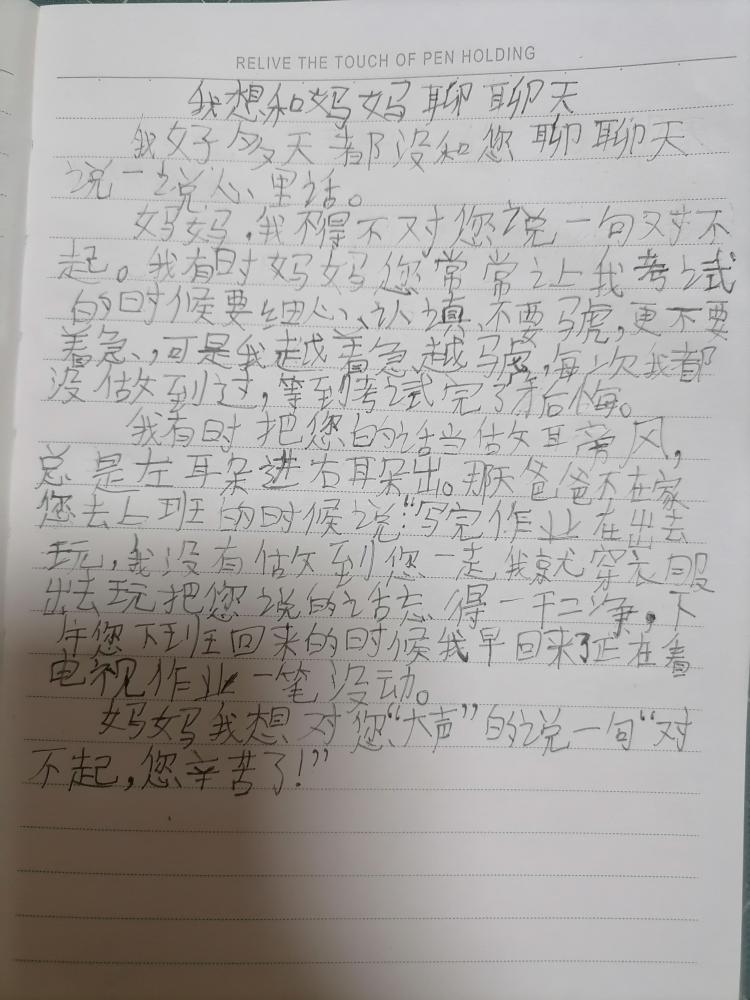 RELIVE THE TOUCH OF PEN HOLDING
我想和妈妈聊聊天
我好多天都没和您聊聊天
说一说心里话。
妈妈,我不得不对您说一句对不
起。我有时妈妈您常常让我考试
的时候要细心、认填、不要马虎,更不要
着急、,可是我越着急越马虎,每次我都
没做到过,等到考试完了才后悔。
我有时把您的话当做耳旁风,
总是左耳朵进右耳朵出。那天爸爸不在家
您去上班的时候说:“写完作业在出去
玩,我没有做到您一走我就穿衣服
出去玩把您说的话忘得一干二净,下
午您下到班回来的时候我早回来了正在看
电视作业一笔没动。
妈妈我想对您“大声”的说一句“对
不起,您辛苦了!”